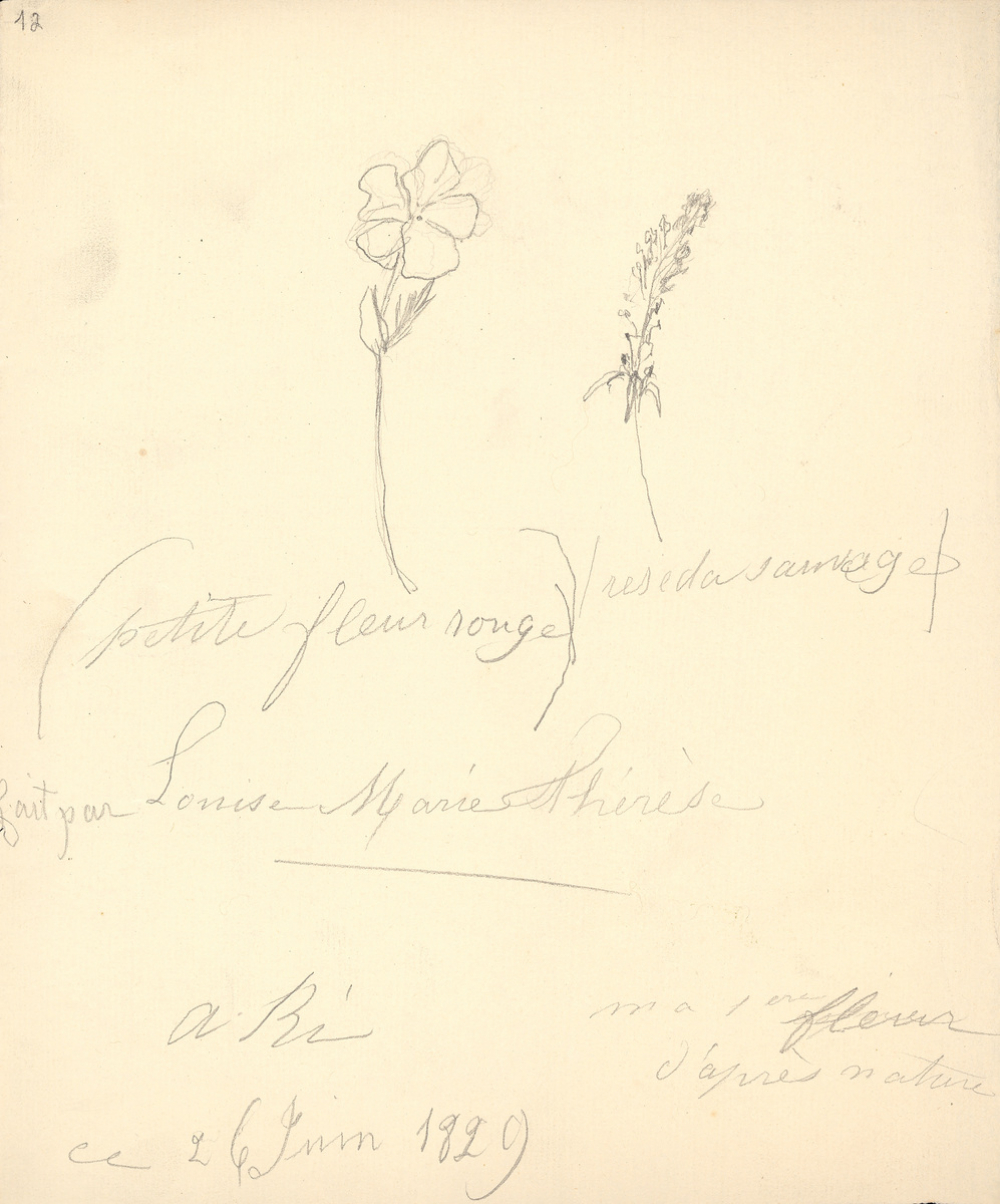 12
(petite fleur rouge)
(reseda sauvage)
fait par Louise Marie Thérèse
a Ri
ma 1ere fleur
d'après nature
ce 26 Juin 1829